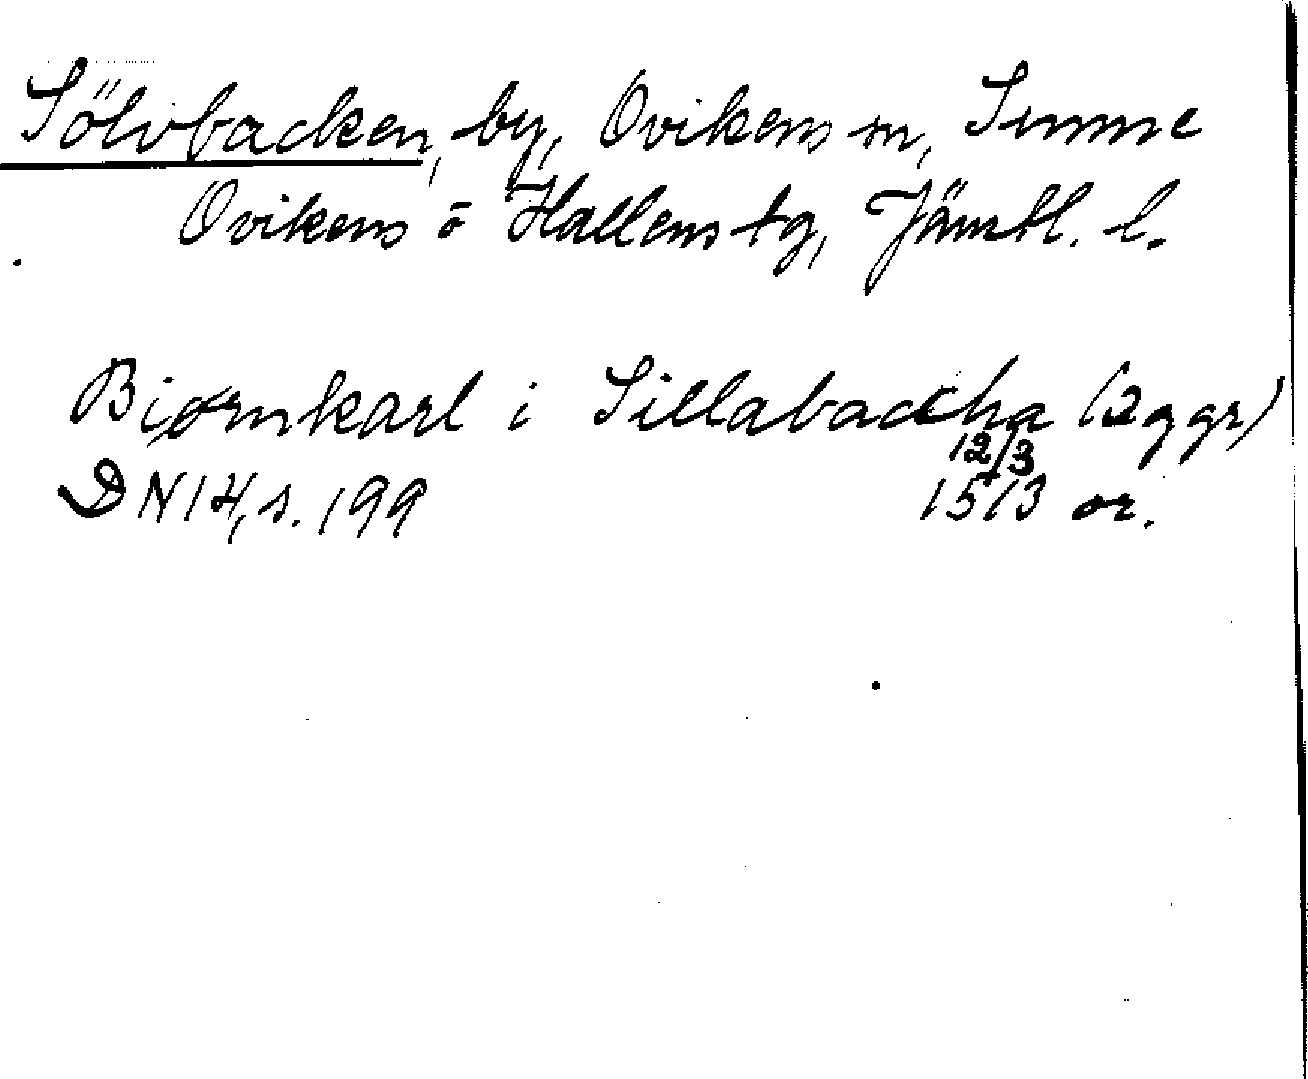 Sölvbacken, by, Ovikens sn, Sunne
Ovikens o Hallens tg, Jämtl. l.
Biørnkarl i Sillabackha (2 ggr)
12/3
DN 14, s. 199 1513 or.